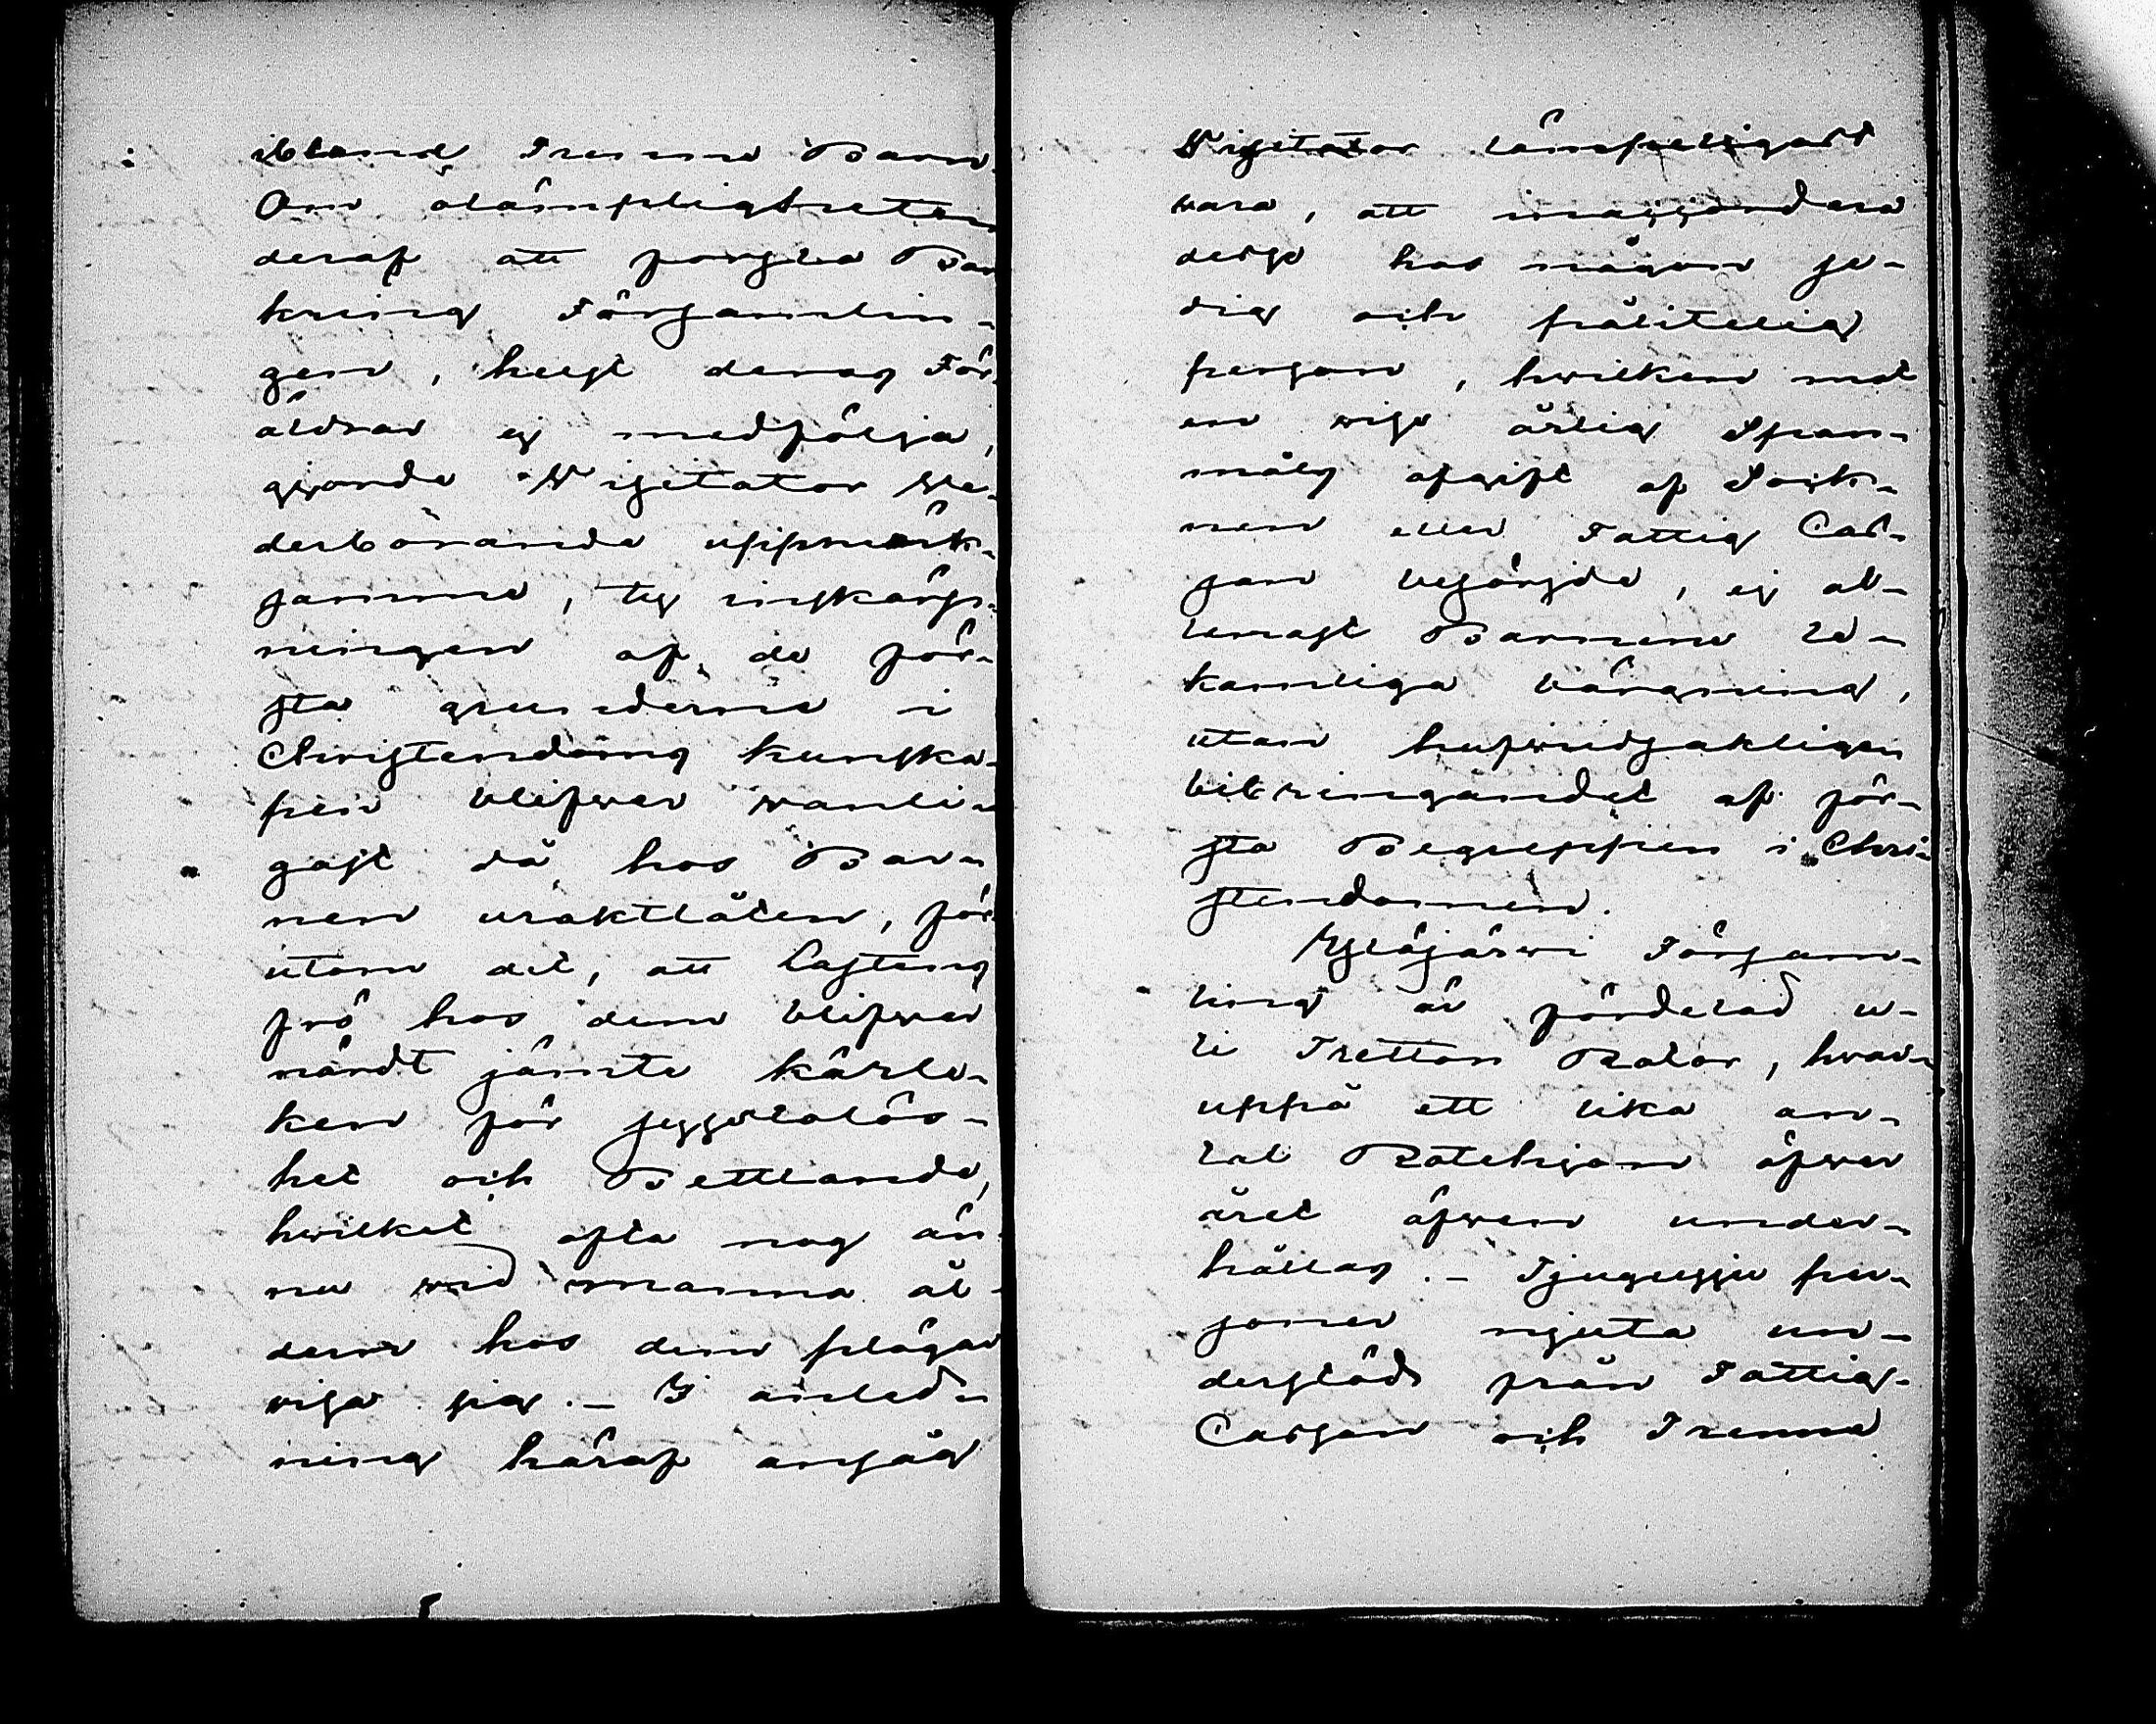 ibland Trenne Barn.
Om olämpligheten
deraf att forsla Bar
kring Församlin-
gen, helst deras För-
äldrar ej medfölja,
gjorde Visitator ve-
derbörande uppmärk-
samme, ty inskärp-
ningen af de för-
sta grunderne i
Christendoms kunska-
pen blifver vanli-
gast då hos Bar-
nen uraktlåten, för
utom det, att Lastens
frö hos dem blifver
närdt jämte kärle-
ken för sysslolös-
het och Bettlande,
hvilket ofta nog än-
nu vid manna ål-
dern hos dem plägar
visa sig. – I anled-
ning häraf ansåg
Visitator lämpeligast
vara, att inackordera
desse hos någon se-
dig och pålitelig
person, hvilken mot
en viss årlig Span-
måls afgift af Sock-
nen eller Fattig Cas-
san besörjde, ej al-
lenast Barnens le-
kamliga bärgning,
utan hufvudsakligen
bibringandet af för-
sta Begreppen i Chri-
stendomen.
Ylöjärvi Försam-
ling är fördelad u-
ti Tretton Rotar, hvar-
uppå ett lika an-
tal Rotehjon öfver
året äfven under-
hållas. – Tjugusju per-
soner njuta un-
derstöd från Fattig-
Cassan och Trenne